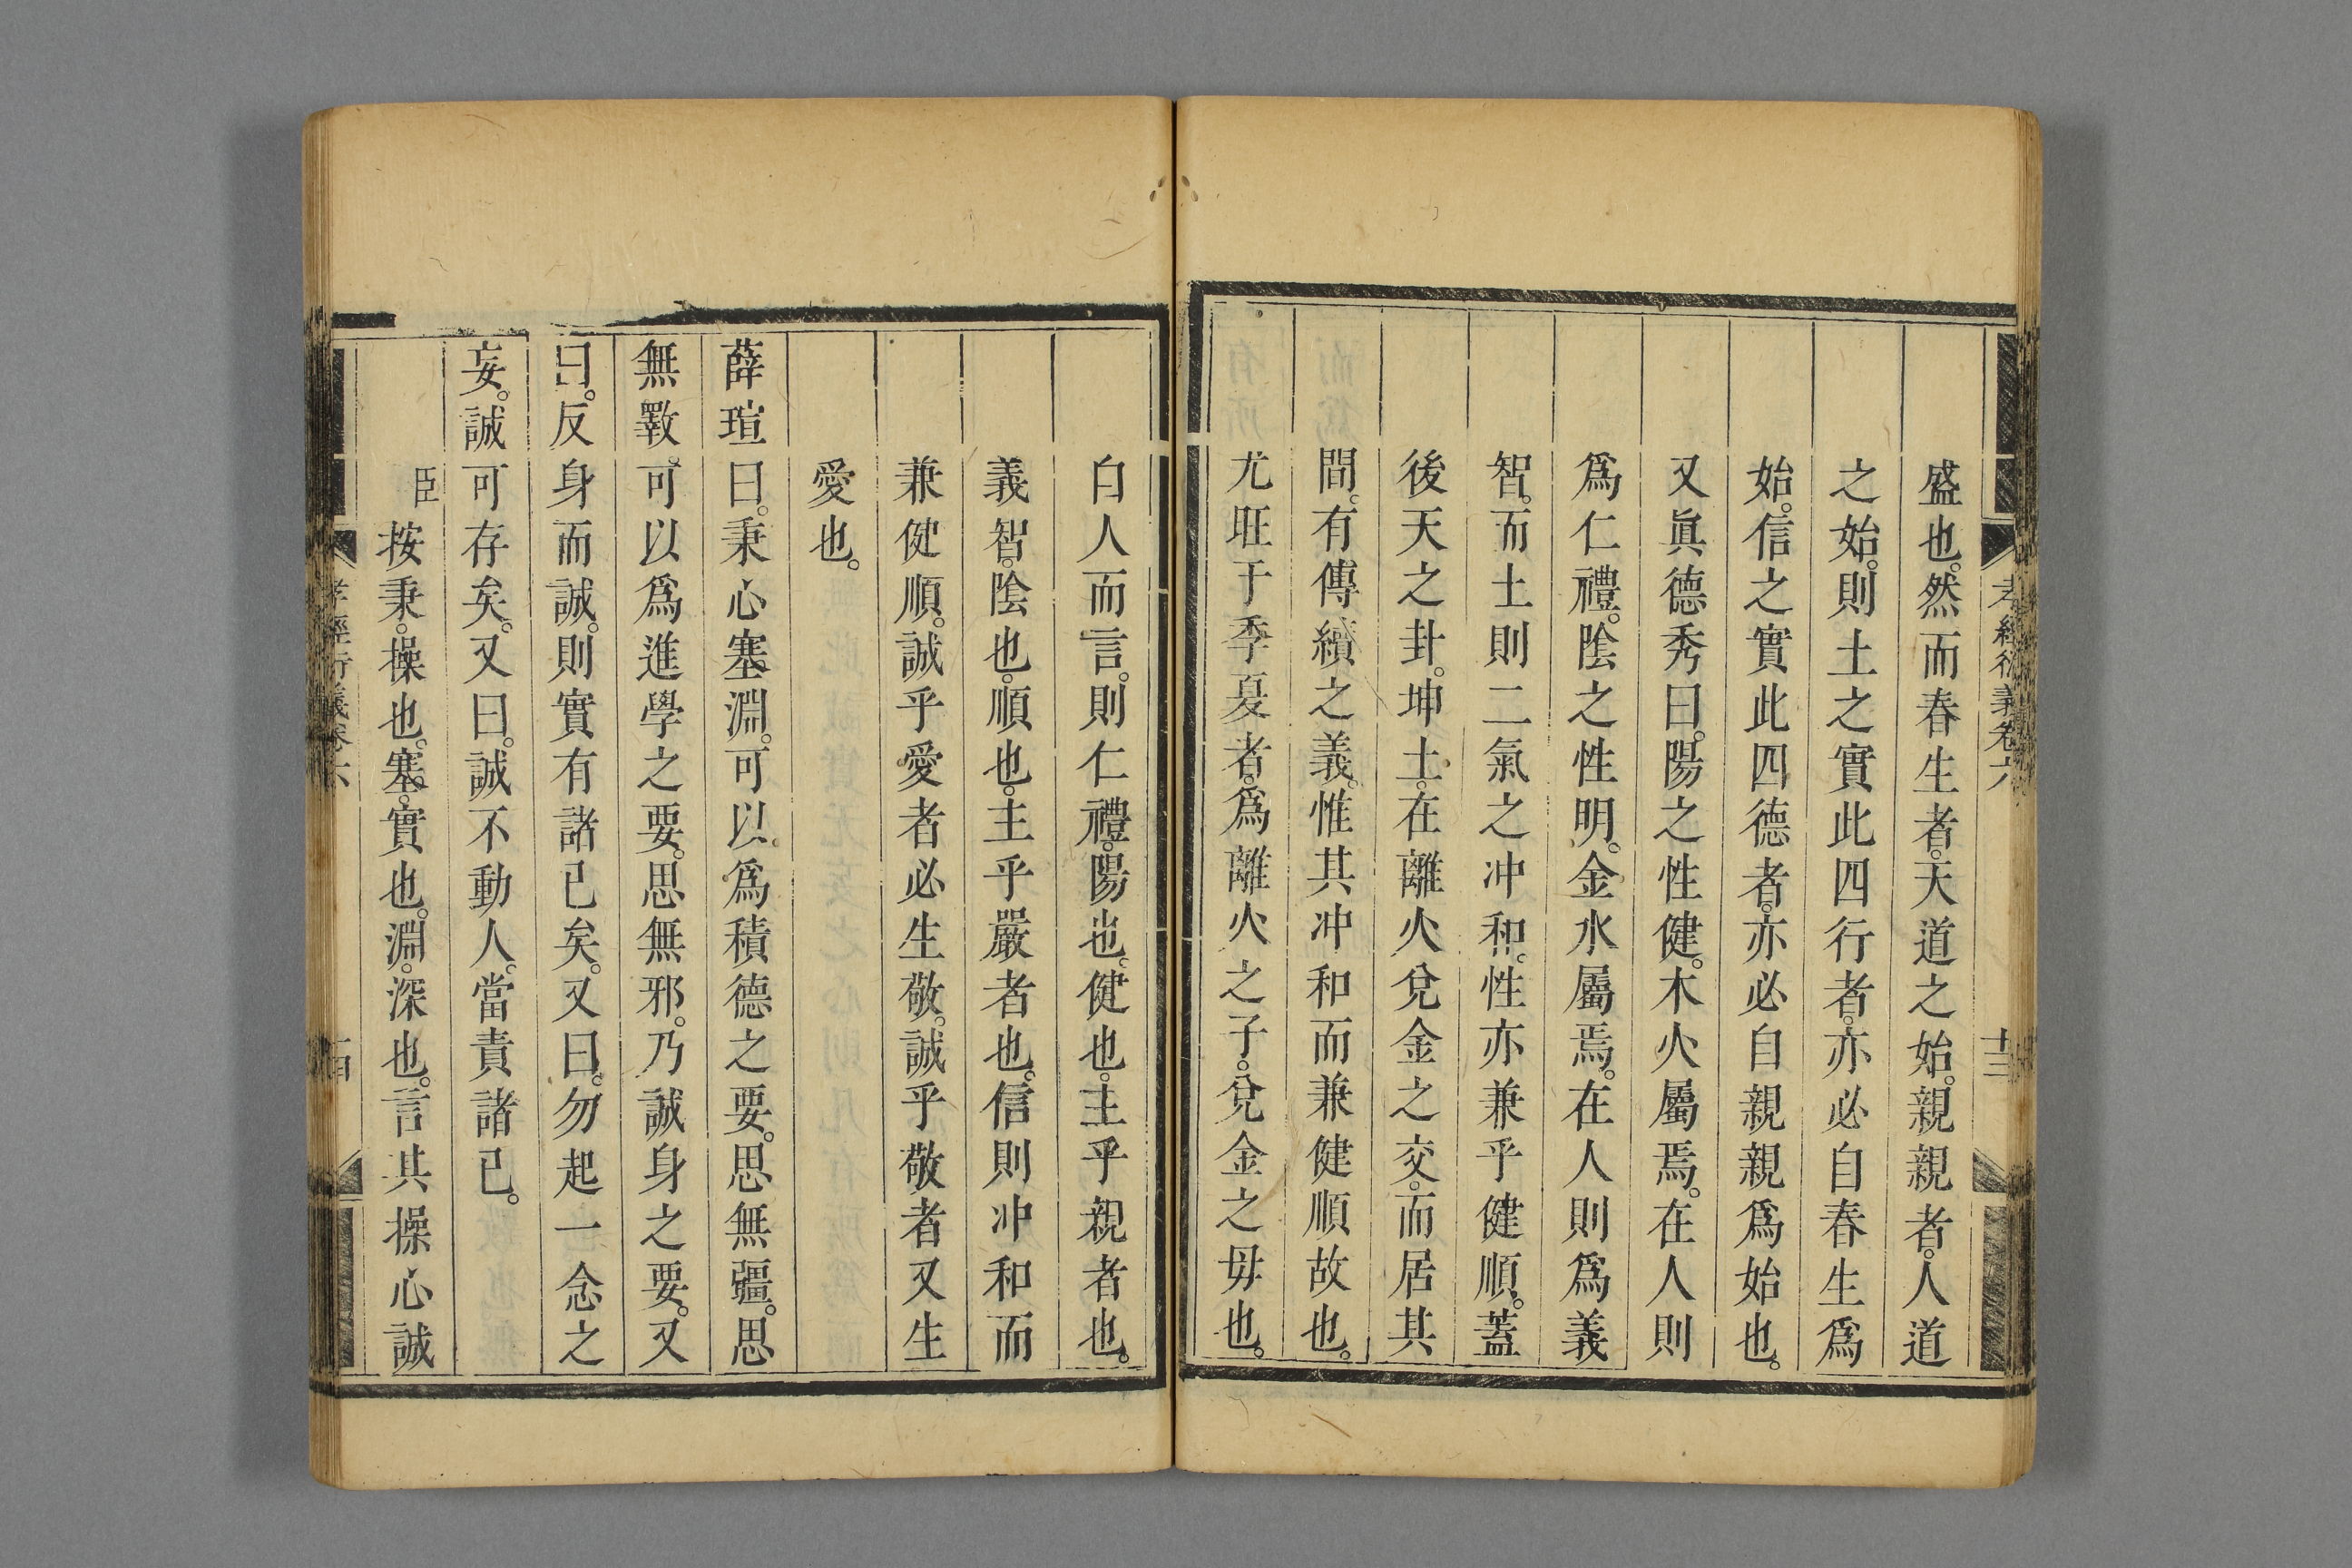 孝經衍義卷六
十三
盛也。然而春生者。天道之始。親親者。人道
之始。則土之實此四行者。亦必自春生爲
始。信之實此四德者。亦必自親親爲始也。
又眞德秀曰。陽之性健。木火屬焉。在人則
爲仁禮。陰之性明。金水屬焉。在人則爲義
智。而土則二氣之冲和。性亦兼乎健順。蓋
後天之卦。坤土。在離火兌金之交。而居其
間。有傳續之義。惟其冲和而兼健順故也。
尤旺于季夏者。爲離火之子。兌金之毋也。
自人而言。則仁禮。陽也。健也。主乎親者也。
義智。陰也。順也。主乎嚴者也。信則冲和而
兼健順。誠乎愛者必生敬。誠乎敬者又生
愛也。
薛瑄曰。秉心塞淵。可以爲積德之要。思無疆。思
無斁。可以爲進學之要。思無邪。乃誠身之要。又
曰。反身而誠。則實有諸已矣。又曰。勿起一念之
妄。誠可存矣。又曰。誠不動人。當責諸已。
臣按秉。操也。塞。實也。淵。深也。言其操心誠
孝經衍義卷六